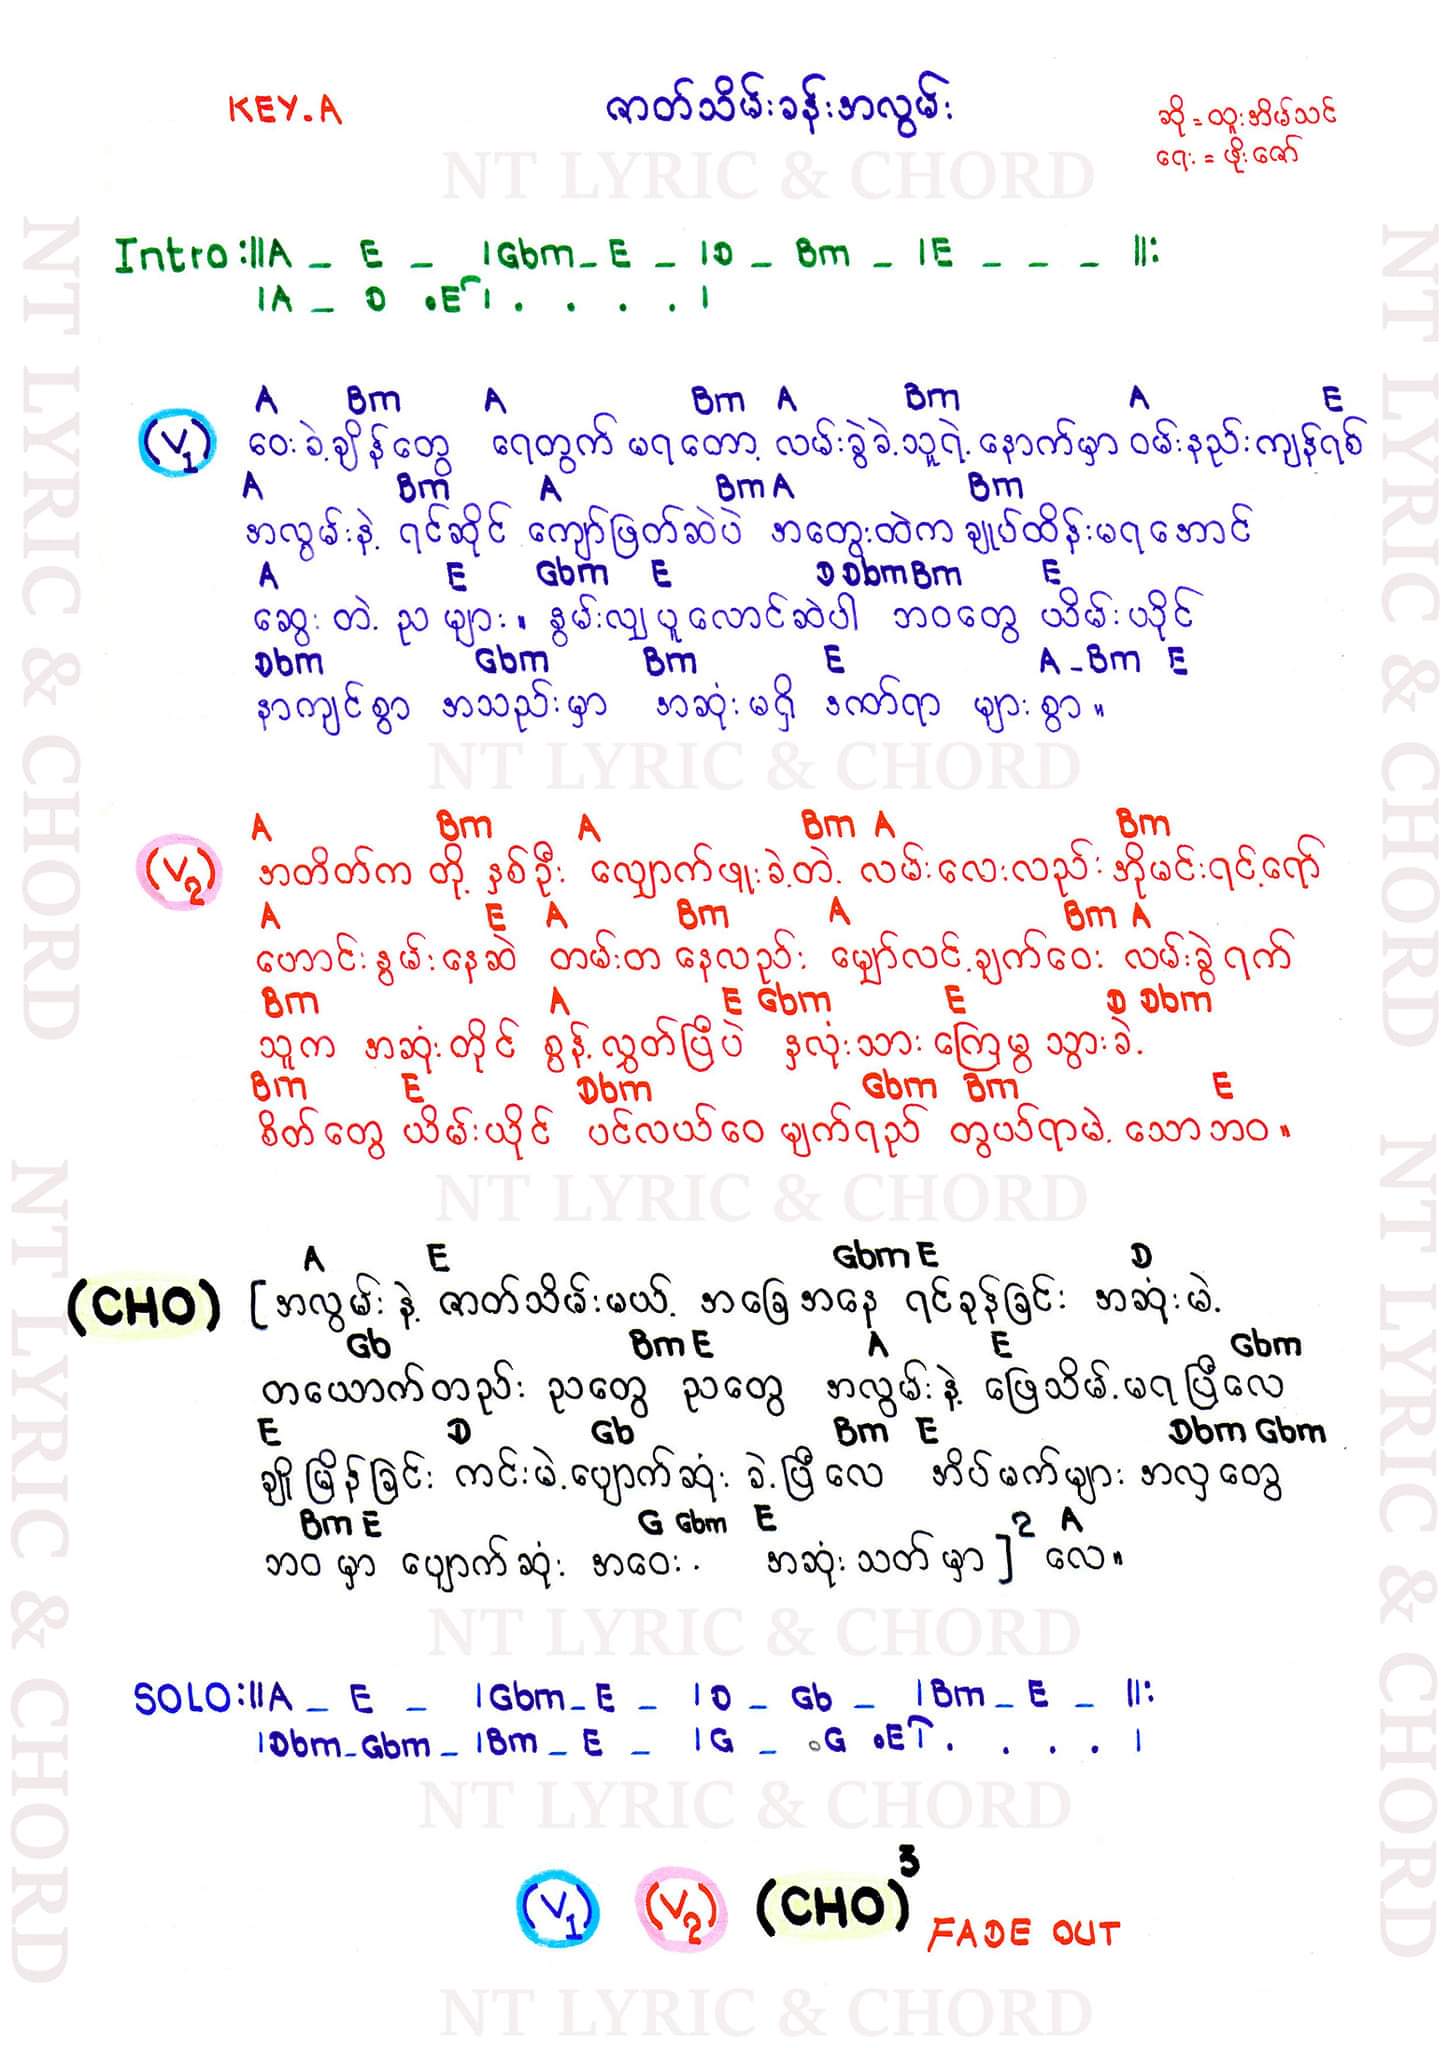 KEY.A
ဇာတ်သိမ်းခန်းအလွမ်း
ဆို = ထူးအိမ်သင်
ရေး = ဖိုးဇော်
NT LYRIC & CHORD
Intro :||A _ E _ |Gbm_E _ |D _ Bm _ |E _ _ _ ||:
|A _ D .E | . . . . |
A Bm A Bm A Bm A E
(V1) ဝေးခဲ့ချိန်တွေ ရေတွက် မရတော့ လမ်းခွဲခဲ့သူရဲ့ နောက်မှာ ဝမ်းနည်းကျန်ရစ်
A Bm A Bm A Bm
အလွမ်းနဲ့ ရင်ဆိုင် ကျော်ဖြတ်ဆဲပဲ အတွေးထဲက ချုပ်ထိန်းမရအောင်
A E Gbm E D Dbm Bm E
ဆွေးတဲ့ ည များ။ နွမ်းလျှပူလောင်ဆဲပါ ဘဝတွေ ယိမ်းယိုင်
Dbm Gbm Bm E A - Bm E
နာကျင်စွာ အသည်းမှာ အဆုံးမရှိ ဒဏ်ရာ များစွာ။
NT LYRIC & CHORD
A Bm A Bm A Bm
(V2) အတိတ်က တို့ နှစ်ဦး လျှောက်ဖူးခဲ့တဲ့ လမ်းလေးလည်း အိုမင်းရင့်ရော်
A E A Bm A Bm A
ဟောင်းနွမ်းနေဆဲ တမ်းတ နေလည်း မျှော်လင့်ချက်ဝေး လမ်းခွဲရက်
Bm A E Gbm E D Dbm
သူက အဆုံးတိုင် စွန့်လွှတ်ပြီပဲ နှလုံးသား ကြေမွ သွားခဲ့
Bm E Dbm Gbm Bm E
စိတ်တွေ ယိမ်းယိုင် ပင်လယ်ဝေ မျက်ရည် တွယ်ရာမဲ့ သောဘဝ။
NT LYRIC & CHORD
A E Gbm E D
(CHO) [ အလွမ်း နဲ့ ဇာတ်သိမ်းမယ့် အခြေအနေ ရင်ခုန်ခြင်း အဆုံးမဲ့
Gb Bm E A E Gbm
တယောက်တည်း ညတွေ ညတွေ အလွမ်းနဲ့ ဖြေသိမ့်မရပြီလေ
E D Gb Bm E Dbm Gbm
ချိုမြိန်ခြင်း ကင်းမဲ့ပျောက်ဆုံး ခဲ့ပြီလေ အိပ်မက်များ အလှတွေ
Bm E G Gbm E 2 A
ဘဝမှာ ပျောက်ဆုံး အဝေး.. အဆုံးသတ်မှာ ] လေ။
NT LYRIC & CHORD
SOLO:||A _ E _ |Gbm_E _ |D _ Gb _ |Bm_E _ ||:
|Dbm_Gbm_|Bm_E _ |G _ .G .E | . . . . |
NT LYRIC & CHORD
(V1) (V2) (CHO)3 FADE OUT
NT LYRIC & CHORD
NT LYRIC & CHORD
NT LYRIC & CHORD
NT LYRIC & CHORD
NT LYRIC & CHORD